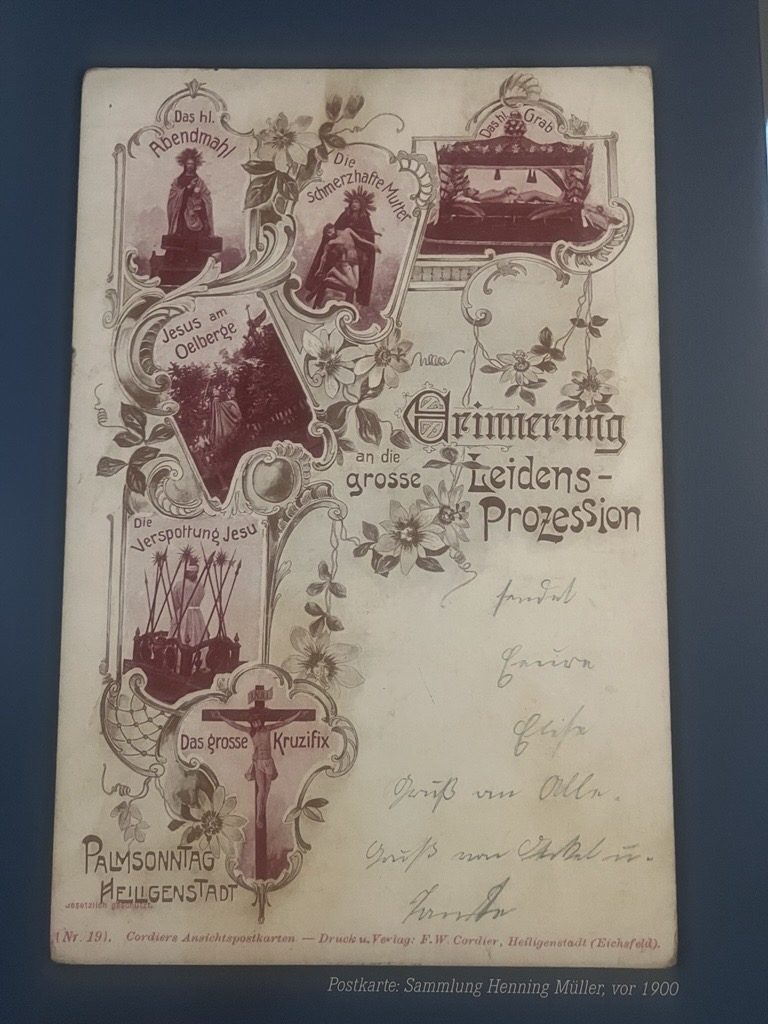 Das hl.
Abendmahl
Die
schmerzhafte Mutter
Das hl. Grab
Jesus am
Oelberge
Erinnerung
an die
grosse
Leidens-
Prozession
Die
Verspottung Jesu
sendet
Eeure
Elise
Gruß an Alle.
Gruß von Onkel u.
Tante
INRI
Das grosse Kruzifix
PALMSONNTAG
HEILIGENSTADT
Gesetzlich geschützt.
(Nr. 19). Cordiers Ansichtspostkarten — Druck u. Verlag: F. W. Cordier, Heiligenstadt (Eichsfeld).
Postkarte: Sammlung Henning Müller, vor 1900